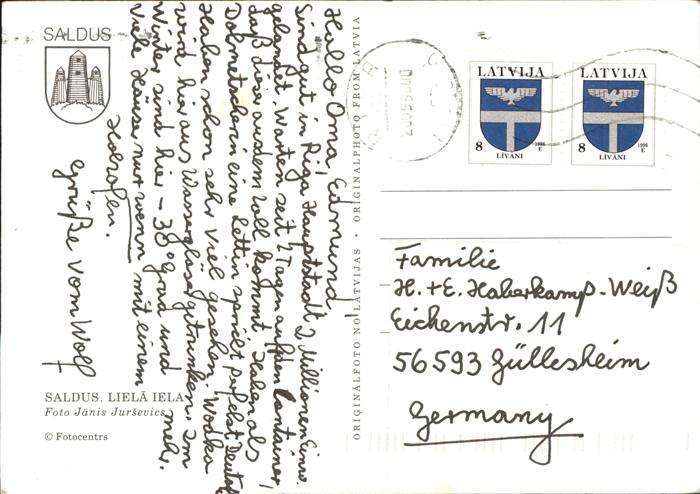 SALDUS
Hallo Oma, Edmund,
Sind gut in Riga Hauptstadt 2 Millionen Einw.
gelandet. Warten seit 2 Tagen auf den Container,
daß dieser aus dem Zoll kommt. Haben als
Dolmetscherin eine Lettin spricht perfekt Deutsch
Haben schon sehr viel gesehen. Wodka
wird hier aus Wassergläser getrunken. Im
Winter sind hier -38° Grad und mehr.
Viele Häuser nur wenn mit einem
Holzofen.
Grüße vom Wolf
SALDUS. LIELĀ IELA
Foto Jānis Jurševics
© Fotocentrs
ORIĢINĀLFOTO NO LATVIJAS • ORIGINALPHOTO FROM LATVIA
LATVIJA
8
1996
E
LĪVĀNI
LATVIJA
8
1996
E
LĪVĀNI
Familie
H. + E. Haberkamp-Weiß
Eichenstr. 11
56593 Güllesheim
Germany